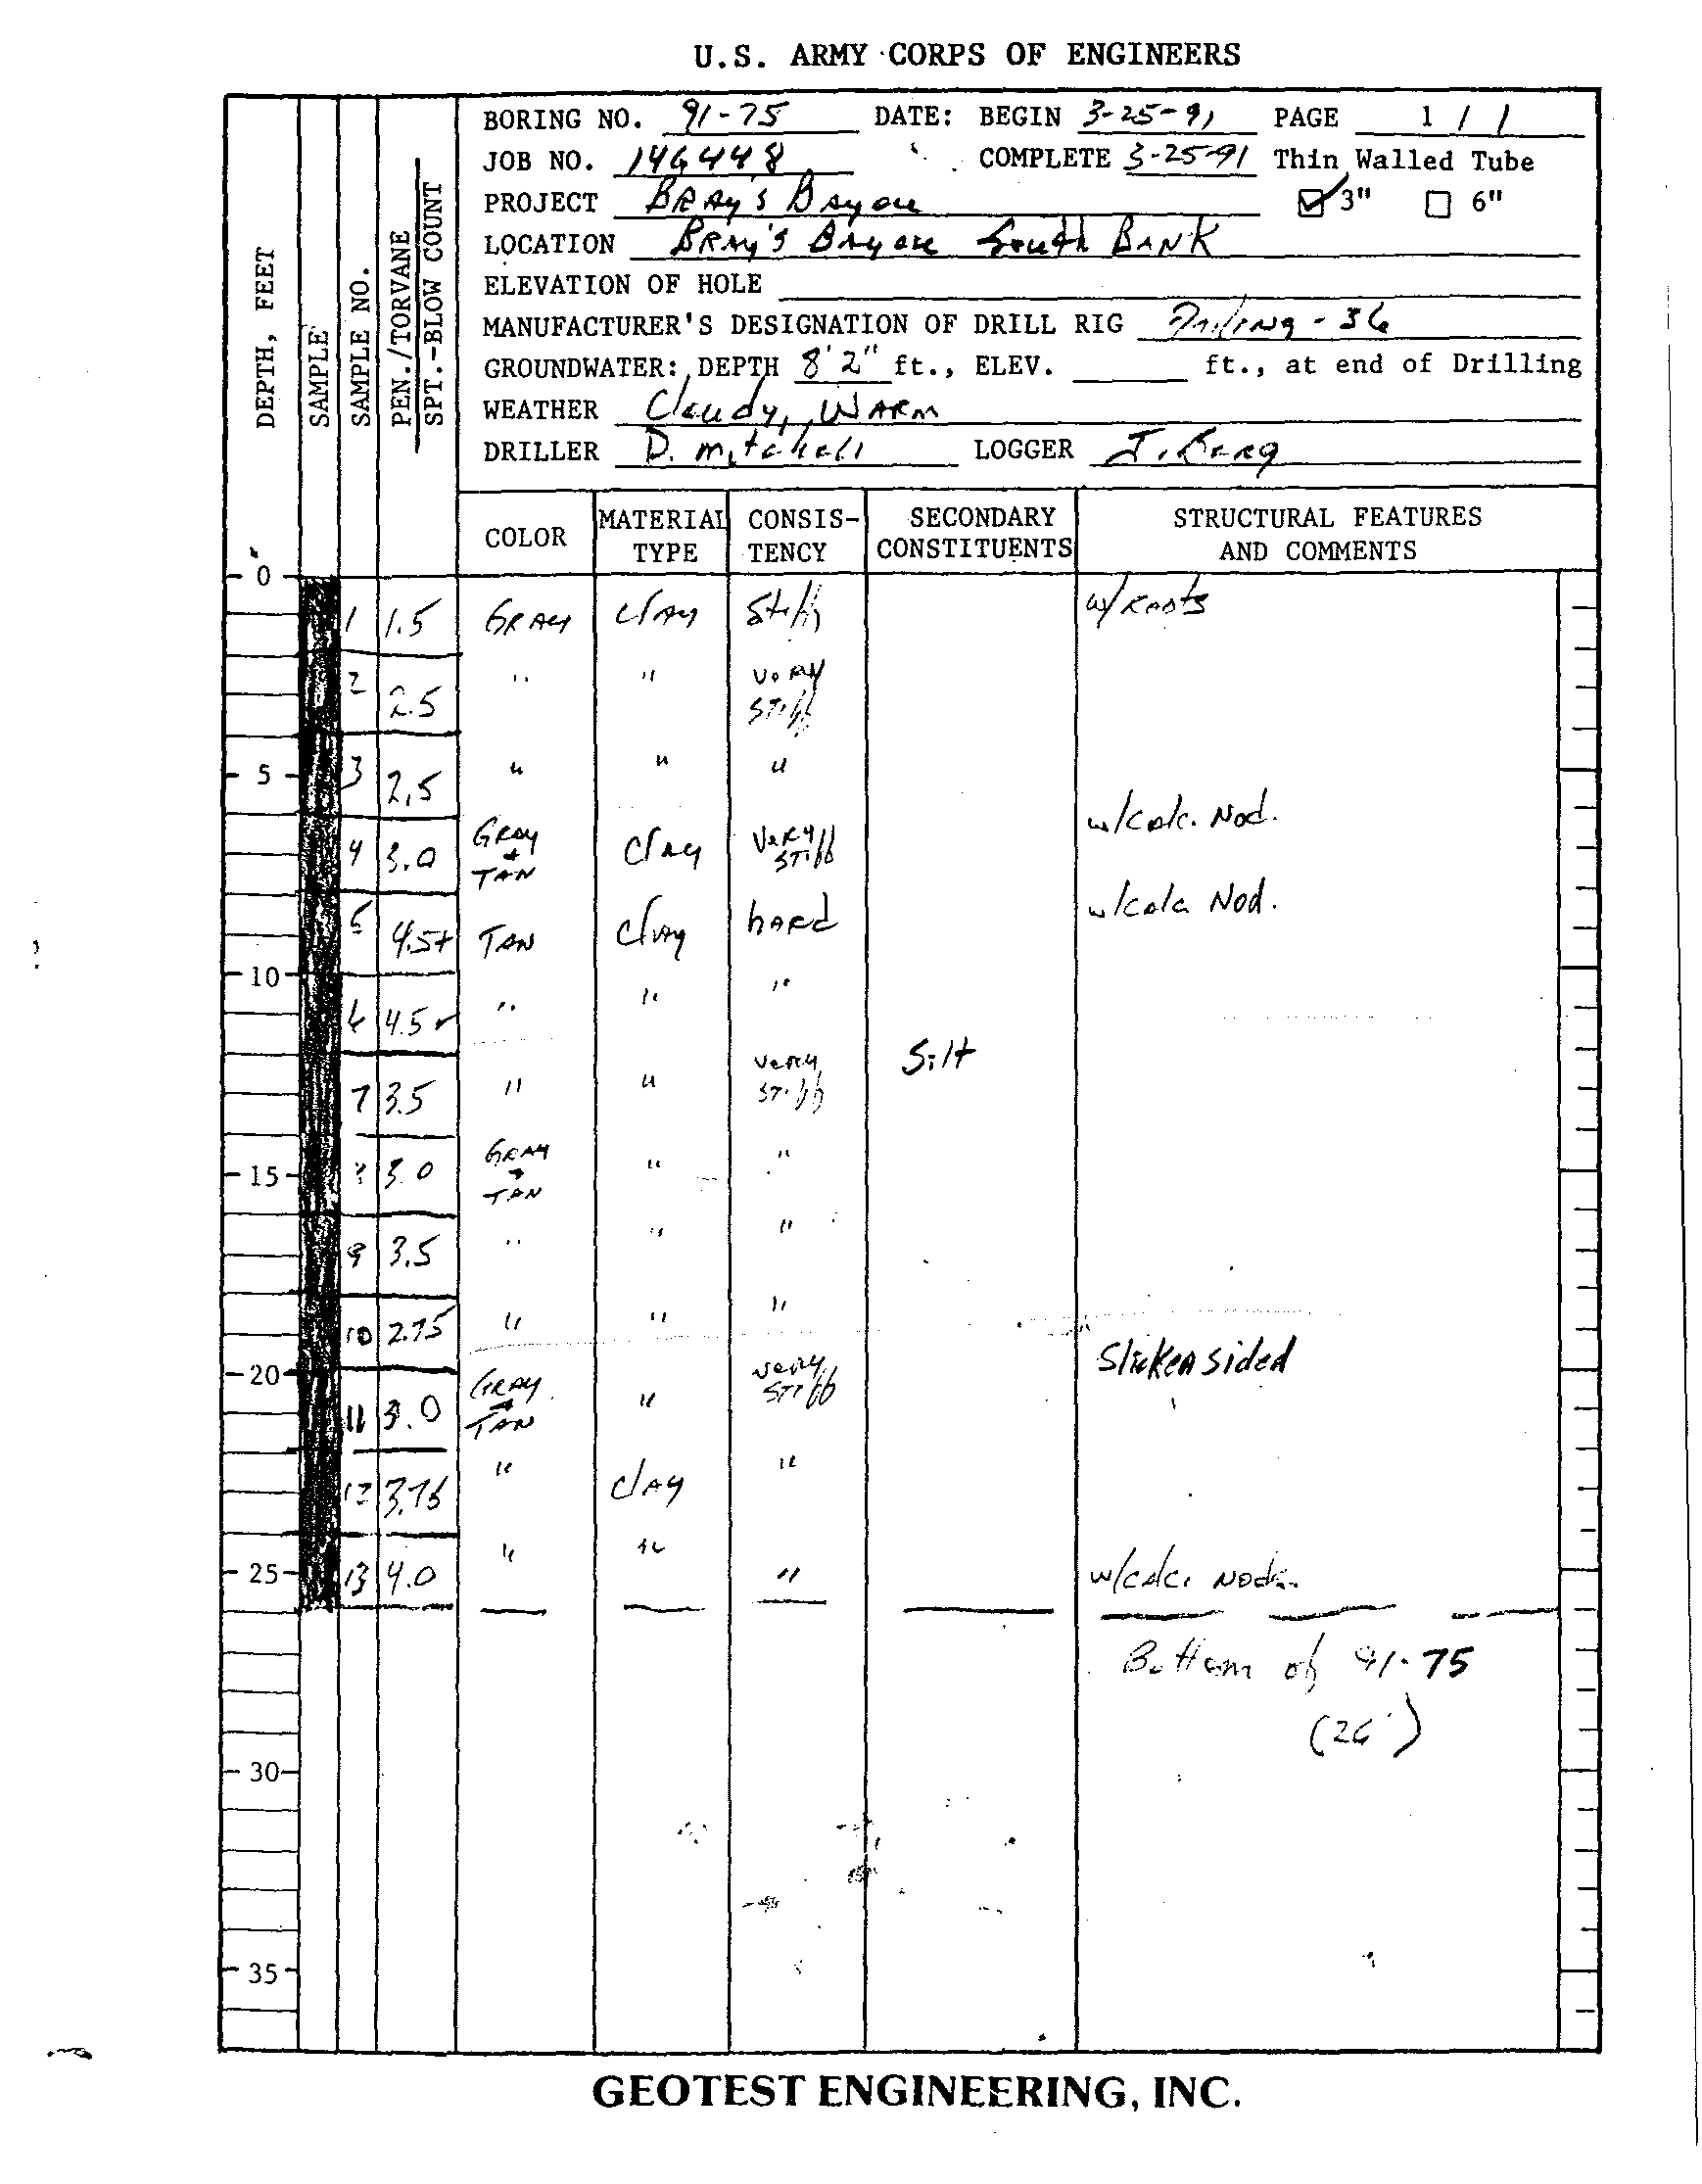 U.S. ARMY CORPS OF ENGINEERS
BORING NO. 91-75 DATE: BEGIN 3-25-91 PAGE 1 / 1
JOB NO. COMPLETE 3-25-91 Thin Walled Tube
PROJECT BRAY'S BAYOU 3" 6"
LOCATION BRAY'S BAYOU South BANK
ELEVATION OF HOLE
MANUFACTURER'S DESIGNATION OF DRILL RIG
GROUNDWATER: DEPTH 8'2" ft., ELEV. ft., at end of Drilling
WEATHER Cloudy, WARM
DRILLER D. Mitchell LOGGER J. Berg
DEPTH, FEET
SAMPLE
SAMPLE NO.
PEN./TORVANE
SPT.-BLOW COUNT
COLOR MATERIAL TYPE CONSIS-TENCY SECONDARY CONSTITUENTS STRUCTURAL FEATURES AND COMMENTS
0
1 1.5 GRAY CLAY Stiff w/Roots
2 2.5 " " very stiff
5 3 2.5 " " "
4 3.0 GRAY + TAN CLAY VERY STIFF w/calc. Nod.
5 4.5+ TAN clay hard w/calc Nod.
10
6 4.5+ " " "
7 3.5 " " very stiff Silt
15 8 3.0 GRAY + TAN " "
9 3.5 " " "
10 2.75 " " "
20
11 3.0 GRAY + TAN " very stiff Slickensided
12 3.75 " CLAY "
25 13 4.0 " " " w/calc. Nods.
Bottom of 91-75
(26')
30
35
GEOTEST ENGINEERING, INC.